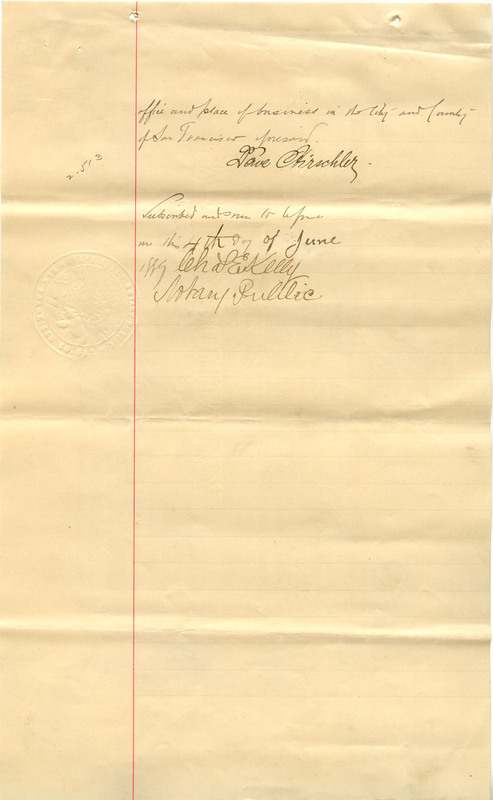 office and place of business in the City and County
of San Francisco aforesaid.
Dave Hirschler.
2.513
Subscribed and sworn to before me
on this 4th day of June
1889 Chas E Kelly
Notary Public